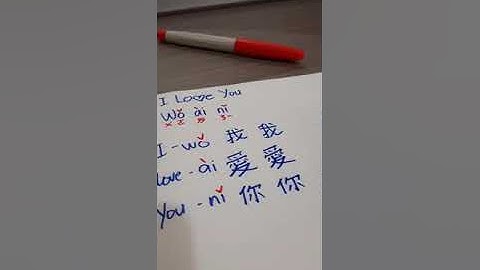 I Love You
Wǒ ài nǐ
I - wǒ 我 我
Love - ài 爱 爱
You - nǐ 你 你